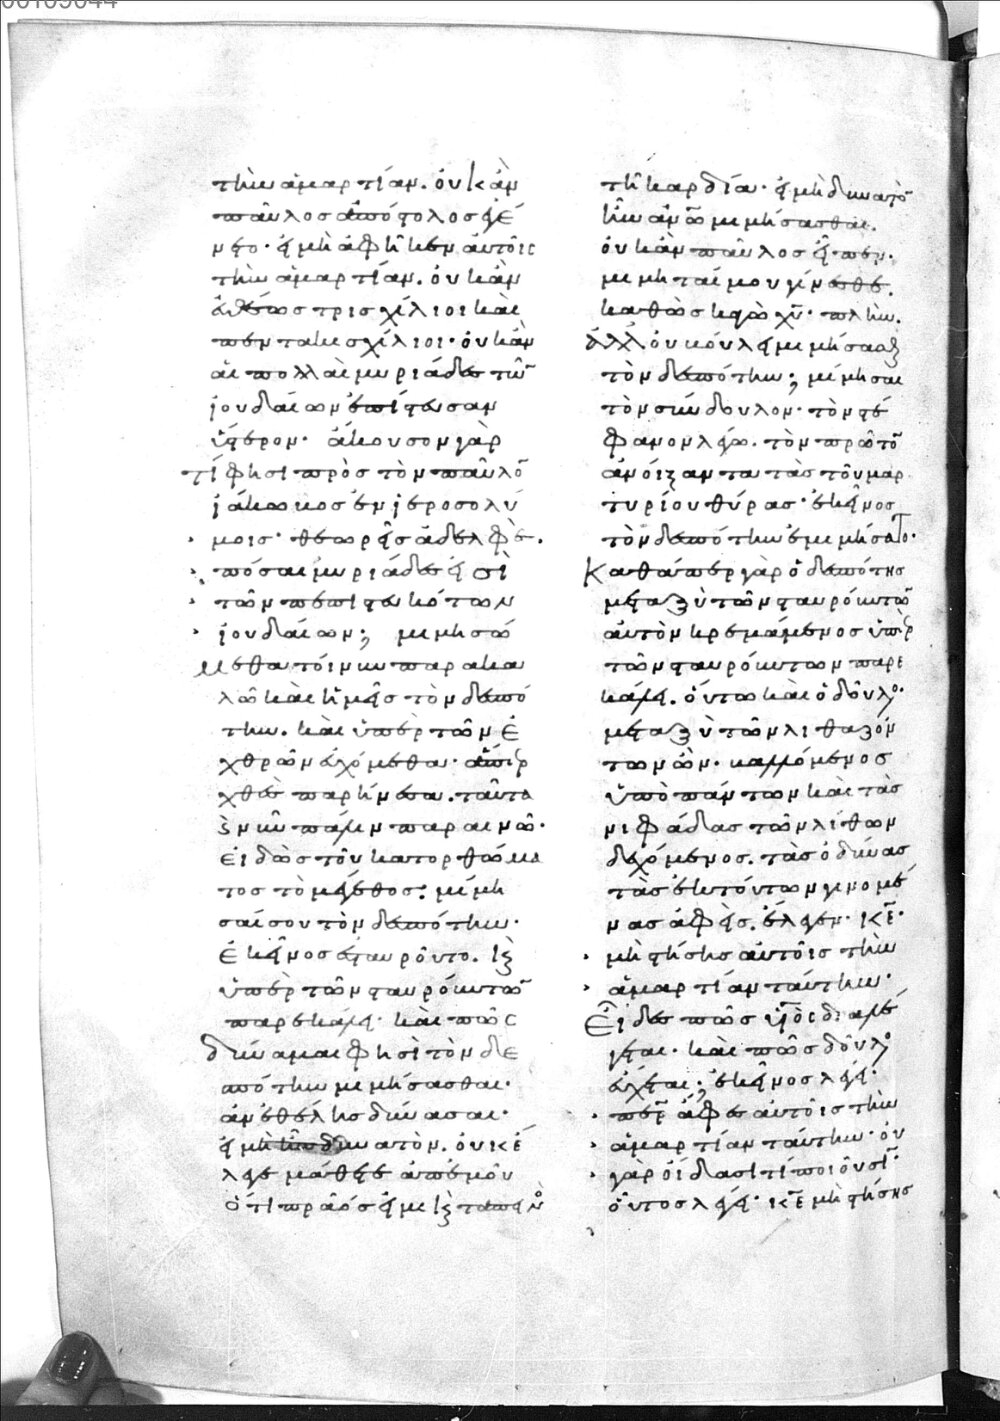 τὴν ἁμαρτίαν. οὐκ ἂν
παῦλος ἀπόστολος ἐγέ
νετο· εἰ μὴ ἀφῆκεν αὐτοῖς
τὴν ἁμαρτίαν. οὐκ ἂν
εὐθέως τρισχίλιοι καὶ
πεντακισχίλιοι· οὐκ ἂν
αἱ πολλαὶ μυριάδες τῶν
ἰουδαίων ἐπίστευσαν
ὕστερον· ἄκουσον γὰρ
τί φησι πρὸς τὸν παῦλον
ἰάκωβος ἐν ἱεροσολύ
μοις· θεωρεῖς ἀδελφέ.
πόσαι μυριάδες εἰσὶ
τῶν πεπιστευκότων
ἰουδαίων; μιμησώ
μεθα τοίνυν παρακα
λῶ καὶ ἡμεῖς τὸν δεσπό
την. καὶ ὑπὲρ τῶν ἐ
χθρῶν εὐχόμεθα·
χθὲς παρήνεσα. ταῦτα
νῦν πάλιν παραινῶ·
εἰδὼς τοῦ κατορθώμα
τος τὸ μέγεθος· μίμη
σαί σου τὸν δεσπότην·
ἐκεῖνος ἐσταυροῦτο. κὶ
ὑπὲρ τῶν σταυρούντων
παρεκάλει· καὶ πῶς
δύναμαι φησὶ τὸν δε
σπότην μιμήσασθαι·
ἂν ἐθέλῃς δύνασαι·
εἰ μὴ ἦν δυνατὸν. οὐκ ἔ
λεγε μάθετε ἀπ' ἐμοῦ
ὅτι πρᾶός εἰμι κὶ ταπεινὸς
τῇ καρδίᾳ· εἰ μὴ δυνατὸν
ἦν ἀνθρώπῳ μιμήσασθαι.
οὐκ ἂν παῦλος εἶπεν·
μιμηταί μου γίνεσθε.
καθὼς κἀγὼ χυ· πλὴν.
ἀλλ' οὐ βούλει μιμήσασθαι
τὸν δεσπότην; μίμησαι
τὸν σύνδουλον· τὸν στέ
φανον λέγω. τὸν πρῶτον
ἀνοίξαντα τὰς τοῦ μαρ
τυρίου θύρας· ἐκεῖνος
τὸν δεσπότην ἐμιμήσατο·
Καθάπερ γὰρ ὁ δεσπότης
μεταξὺ τῶν σταυρούντων
αὐτὸν κρεμάμενος ὑπὲρ
τῶν σταυρούντων παρε
κάλει. οὕτω καὶ ὁ δοῦλος
μεταξὺ τῶν λιθαζόν
των ὢν· βαλλόμενος
ὑπὸ πάντων καὶ τὰς
νιφάδας τῶν λίθων
δεχόμενος. τὰς ὀδύνας
τὰς ἐκ τούτων γινομέ
νας ἀφεὶς. ἔλεγεν· κε·
μὴ στήσῃς αὐτοῖς τὴν
ἁμαρτίαν ταύτην·
Εἶδες πῶς υἱὸς διαλέ
γεται· καὶ πῶς δοῦλος
εὔχεται; ἐκεῖνος λέγει·
περ ἄφες αὐτοῖς τὴν
ἁμαρτίαν ταύτην· οὐ
γὰρ οἴδασι τί ποιοῦσι·
οὗτος λέγει· κε μὴ στήσῃς